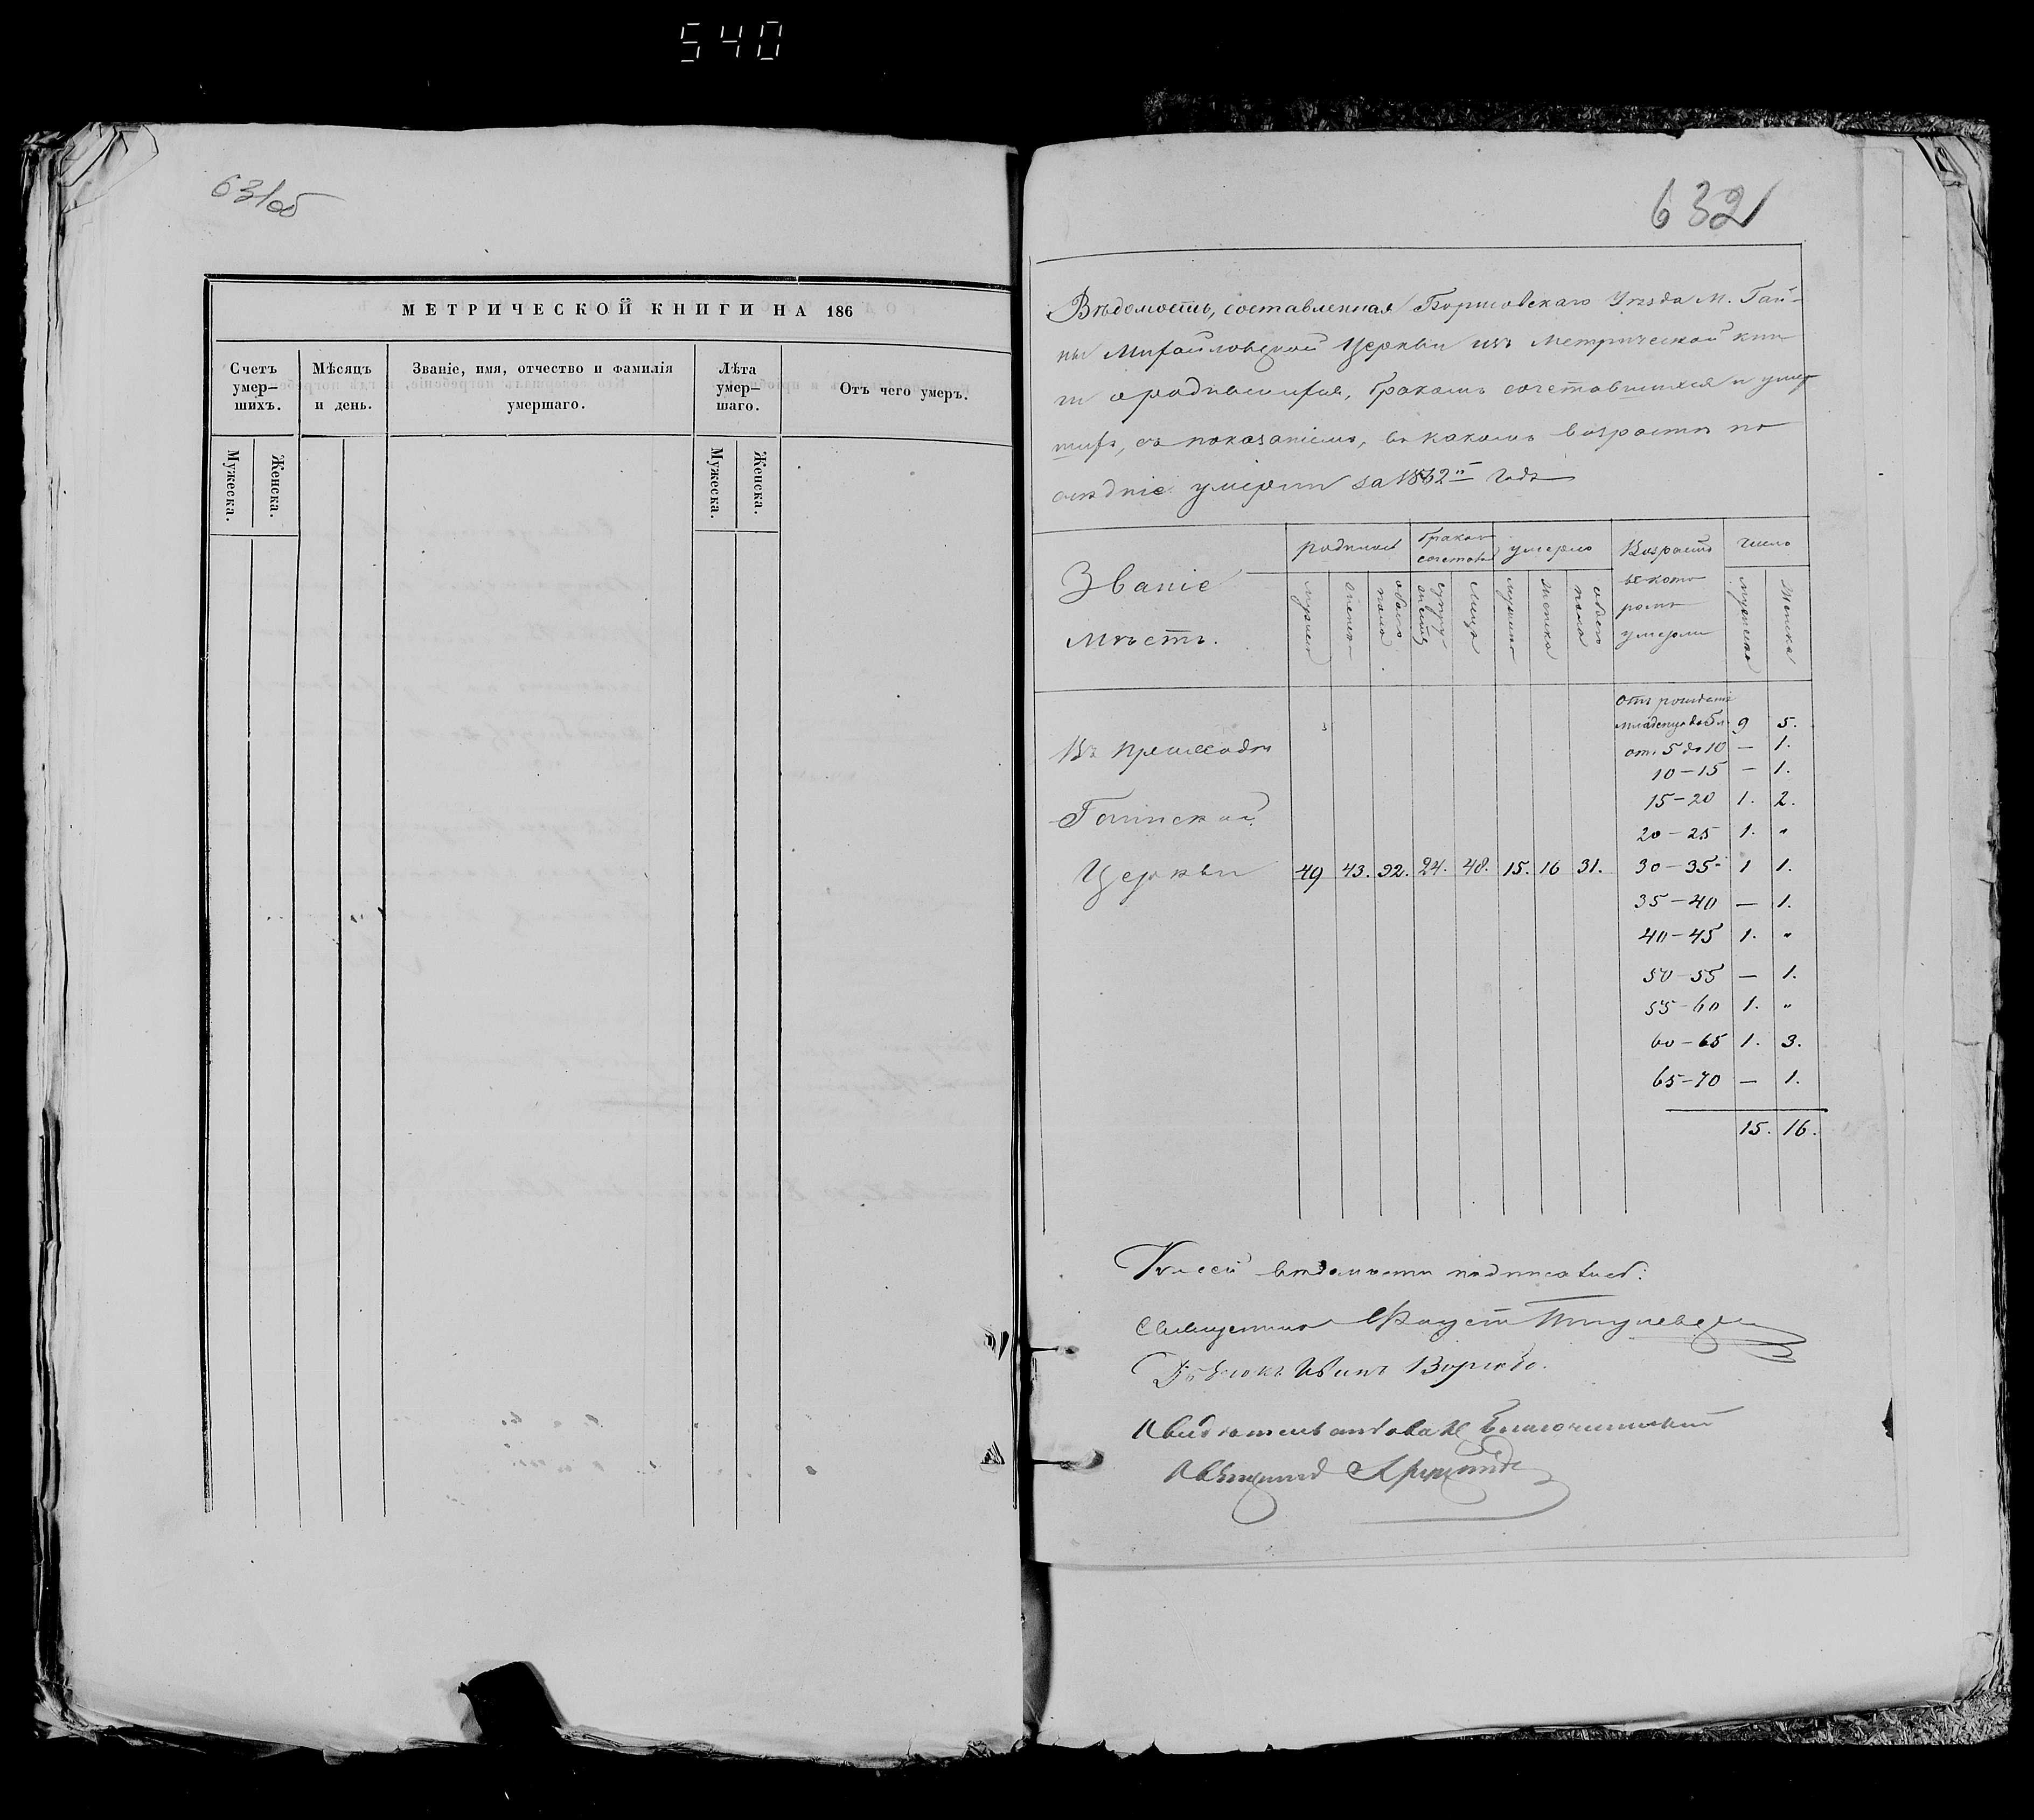 540
631об
МЕТРИЧЕСКОЙ КНИГИ НА 186
Счетъ умер- шихъ.
Мѣсяцъ и день.
Званіе, имя, отчество и фамилія умершаго.
Лѣта умер- шаго.
Отъ чего умеръ.
Мужеска.
Женска.
Мужеска.
Женска.
632
Вѣдомость, составленная Борисовскаго Уѣзда М. Гай-
ны Михайловской Церкви изъ Метрической кни
ги о родившихся, бракомъ сочетавшихся и умер
шихъ, съ показаніемъ, въ какомъ возрастѣ по
слѣдніе умерли за 1862й годъ
Званіе
мѣстъ.
родилось
браком сочетал
умерло
Возрастъ въ кото ромъ умерли
число
мужска
женск
обоего пола
супру жеств
лицъ
мужско
женска
обоего пола
мужеска
женска
Отъ рожденія
младенцевъ до 5 л. 9 5.
отъ 5 до 10 — 1.
Въ приходѣ
10-15 — 1.
Гаинской
15-20 1. 2.
20-25 1. "
Церкви 49 43. 92. 24. 48. 15. 16 31. 30-35 1 1.
35-40 — 1.
40-45 1. "
50-55 — 1.
55-60 1. "
60-65 1. 3.
65-70 — 1.
15. 16.
К сей вѣдомости подписались:
Священникъ Фаустъ
Дьячокъ Иванъ
Свидѣтельствовалъ Благочинный
Священникъ